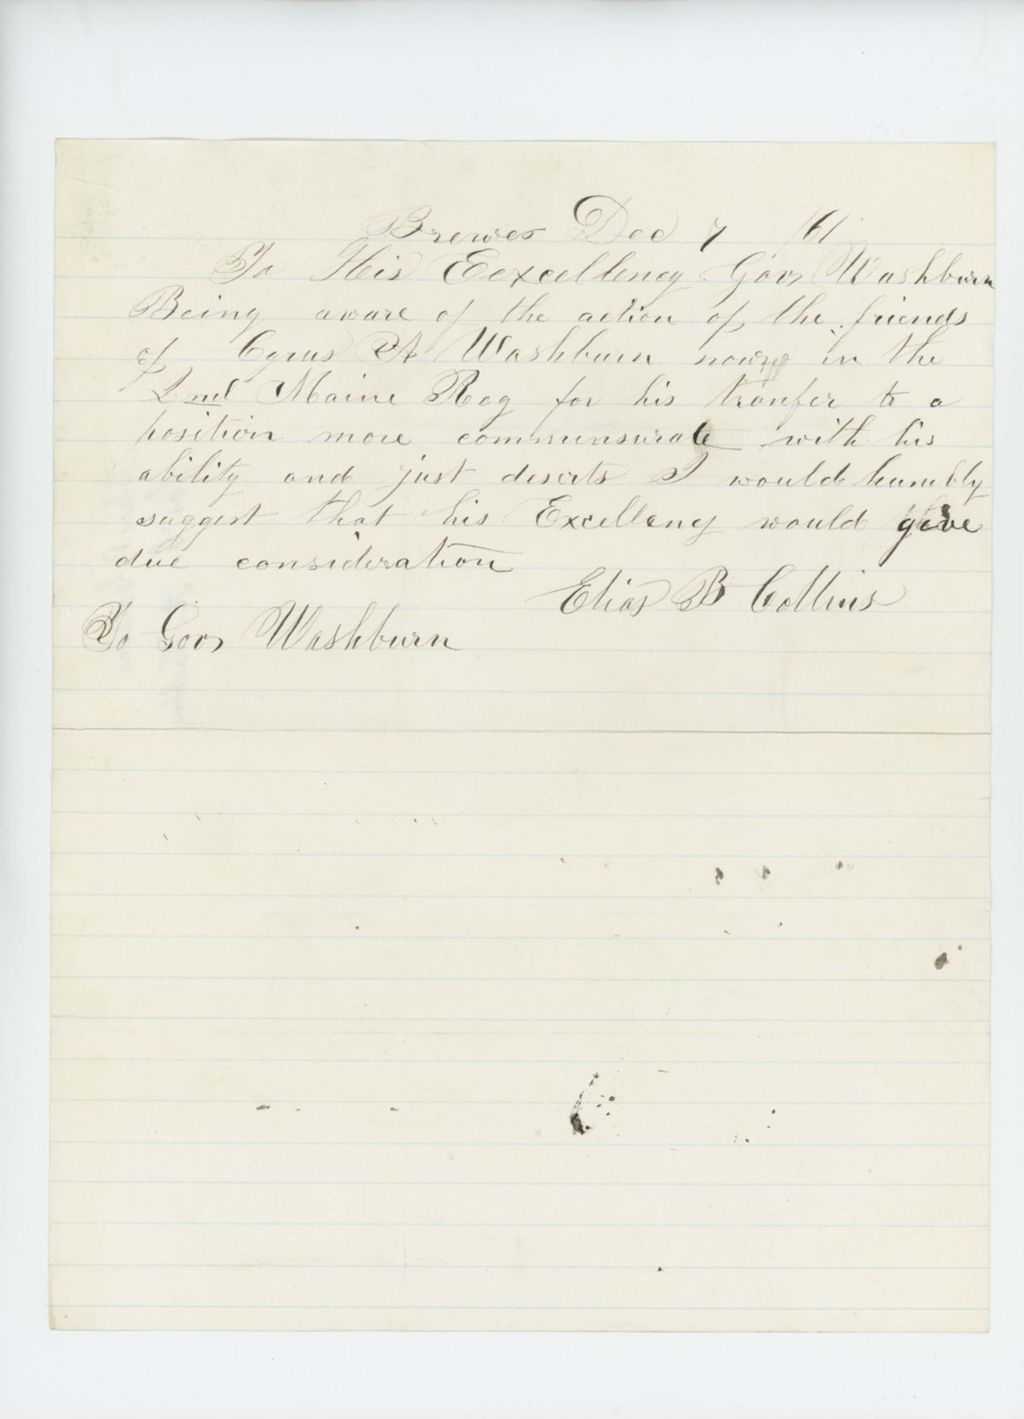 Brewer Dec 7 /61
To His Ecxcellency Gov Washburn
Being aware of the action of the friends
of Cyrus A Washburn now in the
2nd Maine Reg for his tranfer to a
position more communsurate with his
ability and just deserts I would humbly
suggest that his Excelleny would give
due consideration
Elias B Collins
To Gov Washburn